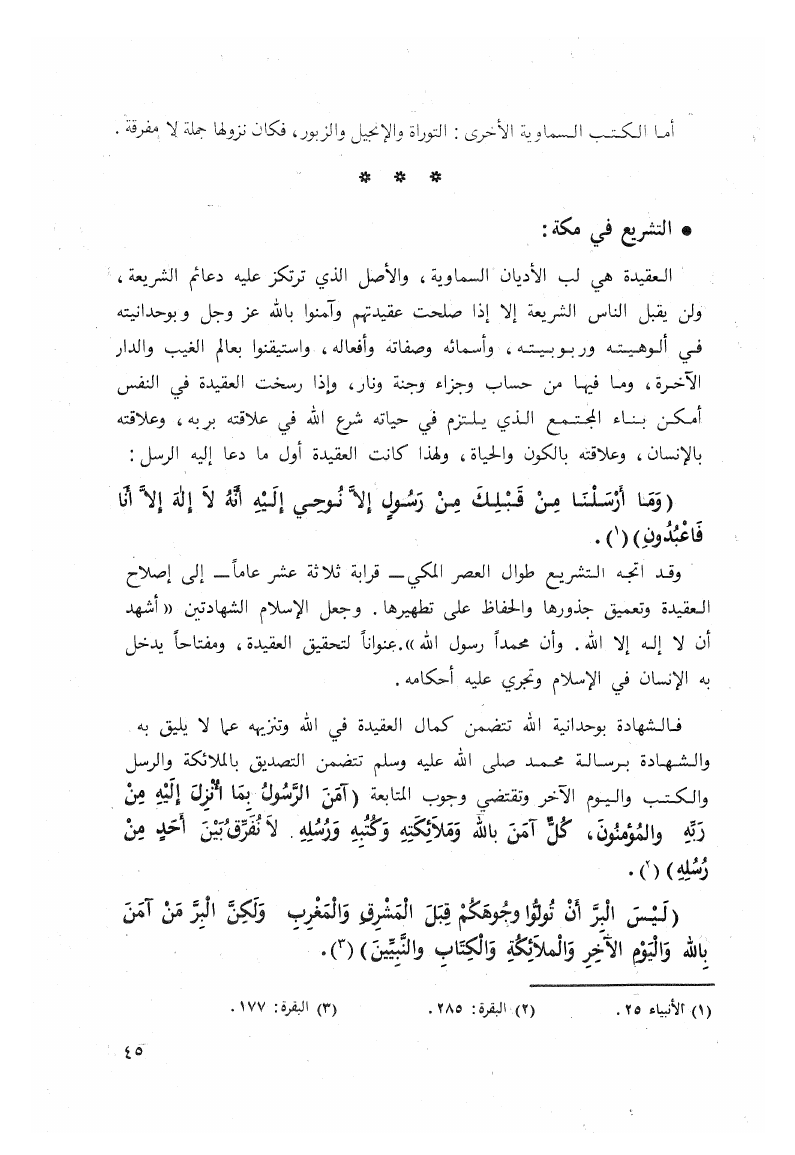 أما الكتب السماوية الأخرى : التوراة والإنجيل والزبور ، فكان نزولها جملة لا مفرقة .
* * *
• التشريع في مكة :
العقيدة هي لب الأديان السماوية ، والأصل الذي ترتكز عليه دعائم الشريعة ،
ولن يقبل الناس الشريعة إلا إذا صلحت عقيدتهم وآمنوا بالله عز وجل وبوحدانيته
في ألوهيته وربوبيته ، وأسمائه وصفاته وأفعاله ، واستيقنوا بعالم الغيب والدار
الآخرة ، وما فيها من حساب وجزاء وجنة ونار، وإذا رسخت العقيدة في النفس
أمكن بناء المجتمع الذي يلتزم في حياته شرع الله في علاقته بربه ، وعلاقته
بالإنسان ، وعلاقته بالكون والحياة ، ولهذا كانت العقيدة أول ما دعا إليه الرسل :
(وَمَا أَرْسَلْنَا مِنْ قَبْلِكَ مِنْ رَسُولٍ إلاَّ نُوحِي إلَيْهِ أَنَّهُ لاَ إلَهَ إلاَّ أَنَا
فَاعْبُدُونِ) (١) .
وقد اتجه التشريع طوال العصر المكي — قرابة ثلاثة عشر عاماً — إلى إصلاح
العقيدة وتعميق جذورها والحفاظ على تطهيرها . وجعل الإسلام الشهادتين « أشهد
أن لا إله إلا الله . وأن محمداً رسول الله » . عنواناً لتحقيق العقيدة ، ومفتاحاً يدخل
به الإنسان في الإسلام وتجري عليه أحكامه .
فالشهادة بوحدانية الله تتضمن كمال العقيدة في الله وتنزيهه عما لا يليق به
والشهادة برسالة محمد صلى الله عليه وسلم تتضمن التصديق بالملائكة والرسل
والكتب واليوم الآخر وتقتضي وجوب المتابعة (آمَنَ الرَّسُولُ بِمَا أُنْزِلَ إلَيْهِ مِنْ
رَبِّهِ والمُؤْمِنُونَ ، كُلٌّ آمَنَ بِاللهِ وَمَلاَئِكَتِهِ وَكُتُبِهِ وَرُسُلِهِ . لاَ نُفَرِّقُ بَيْنَ أَحَدٍ مِنْ
رُسُلِهِ) (٢) .
(لَيْسَ الْبِرَّ أَنْ تُولُّوا وجُوهَكُمْ قِبَلَ الْمَشْرِقِ وَالْمَغْرِبِ وَلَكِنَّ الْبِرَّ مَنْ آمَنَ
بِاللهِ وَالْيَوْمِ الآخِرِ وَالْملاَئِكَةِ وَالْكِتَابِ والنَّبِيِّينَ) (٣) .
(١) الأنبياء ٢٥ . (٢) البقرة : ٢٨٥ . (٣) البقرة : ١٧٧ .
٤٥